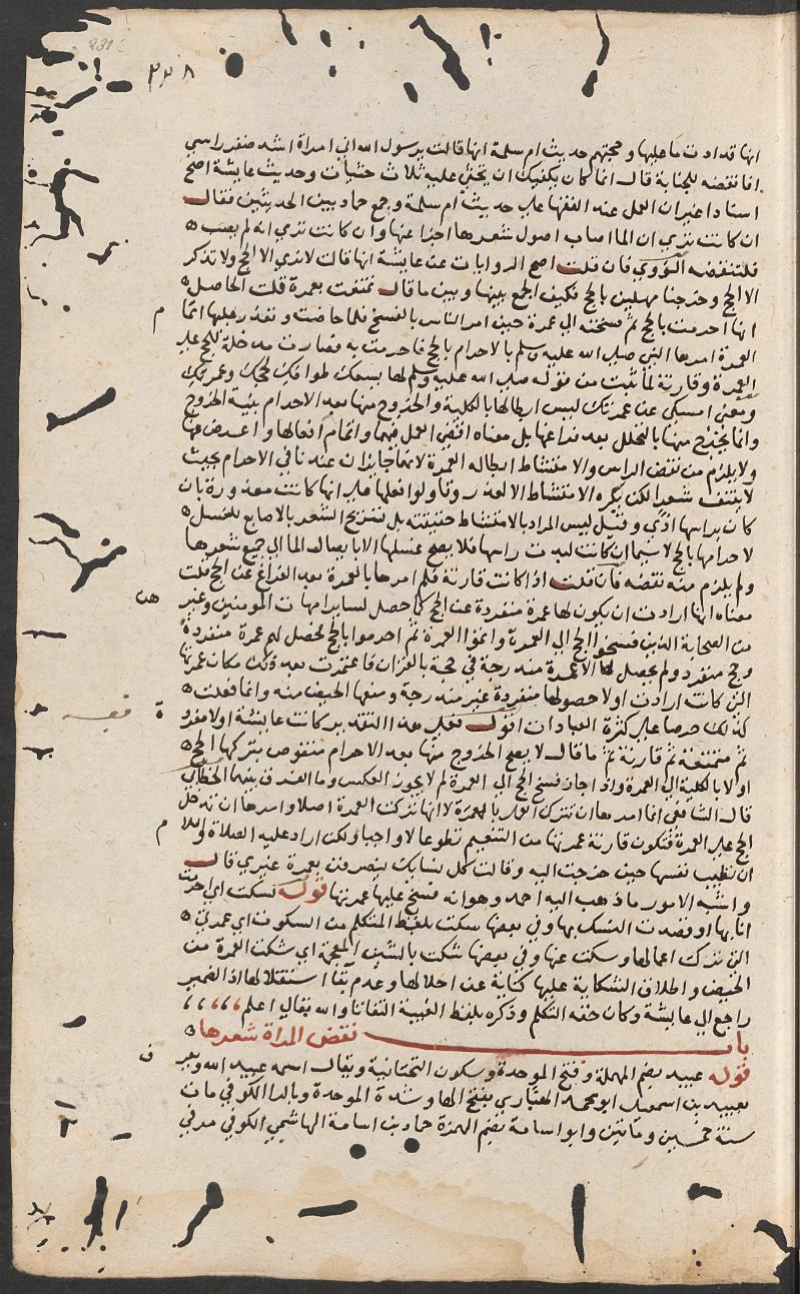 ٢٣٨
انها قد ادت ما عليها وحجتهم حديث ام سلمة انها قالت يرسول الله اني امراة اشد ضفر راسي
افانقضه للجنابة قال انما كان يكفيك ان تحثي عليه ثلاث حثيات وحديث عايشة اصح
اسنادا غير ان العمل عند الفقها علي حديث ام سلمة وجمع حماد بين الحديثين فقال
ان كانت تري ان الما اصاب اصول شعرها اجزا عنها وان كانت تري انه لم يصب
فلتنقضه النووي فان قلت اصح الروايات عن عايشة انها قالت لانري الا الحج ولا نذكر
الا الحج وخرجنا مهلين بالحج فكيف الجمع بينها وبين ما قال تمتعت بعمرة قلت الحاصل
انها احرمت بالحج ثم فسخته الي عمرة حين امر الناس بالفسخ فلما حاضت وتعذر عليها اتمام
العمرة امرها النبي صلي الله عليه وسلم بالاحرام بالحج فاحرمت به فصارت مدخلة للحج علي
العمرة وقارنة لما ثبت من قوله صلي الله عليه وسلم لها يسعك طوافك لحجك وعمرتك
ومعني امسكي عن عمرتك ليس ابطالها بالكلية والخروج منها بعد الاحرام بنية الخروج
وانما يخرج منها بالتحلل بعد فراغها بل معناه ارفضي العمل فيها واتمام افعالها واعرض عنها
ولا يلزم من نقض الراس والامتشاط ابطاله العمرة لانهما جايزان عندنا في الاحرام بحيث
لا ينتف شعرا لكن يكره الامتشاط الا لعذر وتاولوا فعلها علي انها كانت معذورة بان
كان براسها اذي وقيل ليس المراد بالامتشاط حقيقته بل تسريح الشعر بالاصابع للغسل
لاحرامها بالحج لا سيما ان كانت لبدت راسها فلا يصح غسلها الا بايصال الما الي جميع شعرها
ولم يلزم منه نقضه فان قلت اذا كانت قارنة فلم امرها بالعمرة بعد الفراغ عن الحج قلت
معناه انها ارادت ان يكون لها عمرة منفردة عن الحج كما حصل لساير امهات المومنين وغيرهن
من الصحابة الذين فسخوا الحج الي العمرة واتموا العمرة ثم احرموا بالحج لحصل لهم عمرة منفردة
وحج منفرد ولم يحصل لها الا عمرة مندرجة في حجة بالقران فاعتمرت بعد ذلك مكان عمرتها
التي كانت ارادت اولا حصولها منفردة غير مندرجة ومنعها الحيض منه وانما فعلت
كذلك حرصا علي كثرة العبادات اقول فعلي هذا التقدير كانت عايشة اولا مفردة
ثم متمتعة ثم قارنة ثم ما قال لا يصح الخروج منها بعد الاحرام منقوض بتركها الحج
اولا بالكلية الي العمرة واذا جاز فسخ الحج الي العمرة لم لا يجوز العكس وما الفرق بينهما الخطابي
قال الشافعي انما امرها ان تترك العمل بالعمرة لا انها تركت العمرة اصلا وامرها ان تدخل
الحج علي العمرة فتكون قارنة عمرتها من التنعيم تطوعا لا واجبا ولكن اراد عليه الصلاة والسلام
ان تطيب نفسها حين خرجت اليه وقالت كل نسايك ينصرفن بعمرة غيري قال
واشبه الامور ما ذهب اليه احمد وهو انه فسخ عليها عمرتها قوله نسكت اي احرمت
انا بها او قصدت النسك بها وفي بعضها سكت بلفظ المتكلم من السكوت اي عمرتي
التي تركت اعمالها وسكت عنها وفي بعضها شكت بالشين المعجمة اي شكت العمرة من
الحيض واطلاق الشكاية عليها كناية عن اخلالها وعدم بقا استقلالها اذ الضمير
راجع الي عايشة وكان حقه التكلم وذكره بلفظ الغيبة التفاتا والله تعالي اعلم
باب نقض المراة شعرها
قوله عبيد بضم المهملة وفتح الموحدة وسكون التحتانية ويقال اسمه عبيد الله ويعرف
بعبيد بن اسمعيل ابو محمد الهباري بفتح الها وشدة الموحدة وبالرا الكوفي مات
سنة خمسين ومائتين وابو اسامة بضم الهمزة حماد بن اسامة الهاشمي الكوفي مر في